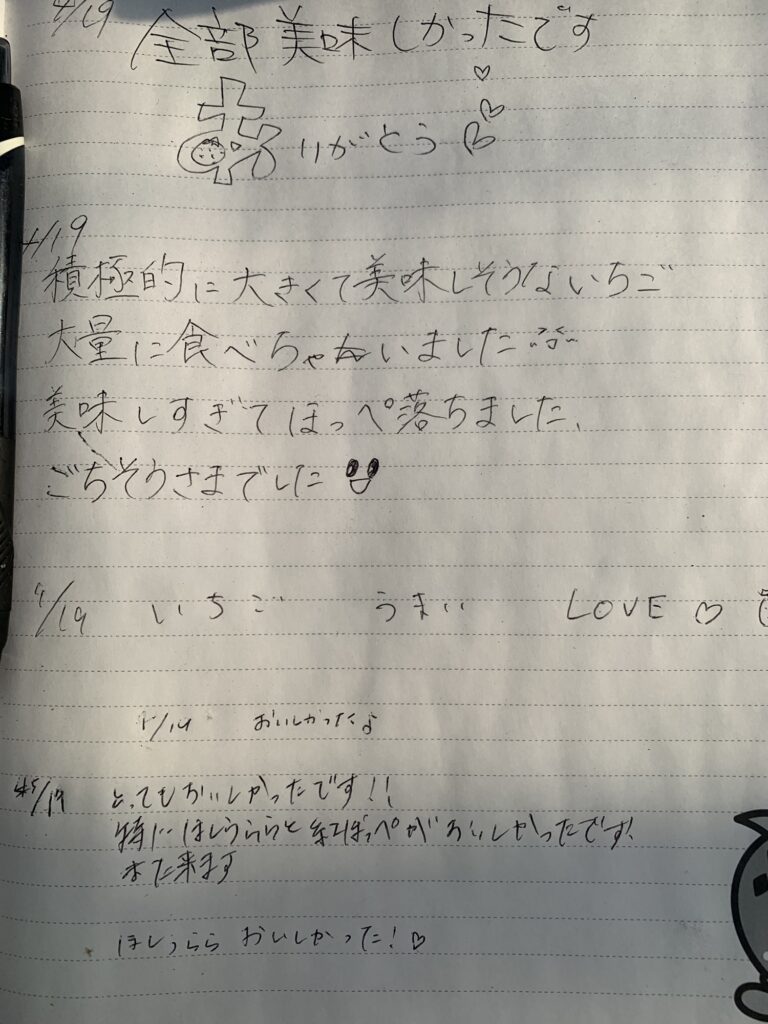 4/19
全部美味しかったです
ありがとう
4/19
積極的に大きくて美味しそうないちご
大量に食べちゃいました
美味しすぎてほっぺ落ちました、
ごちそうさまでした
4/19 いちご うまい LOVE ♡
おいしかったよ
/19 とってもおいしかったです!!
特にほしうららと紅ほっぺがおいしかったです!
また来ます
ほしうらら おいしかった!♡